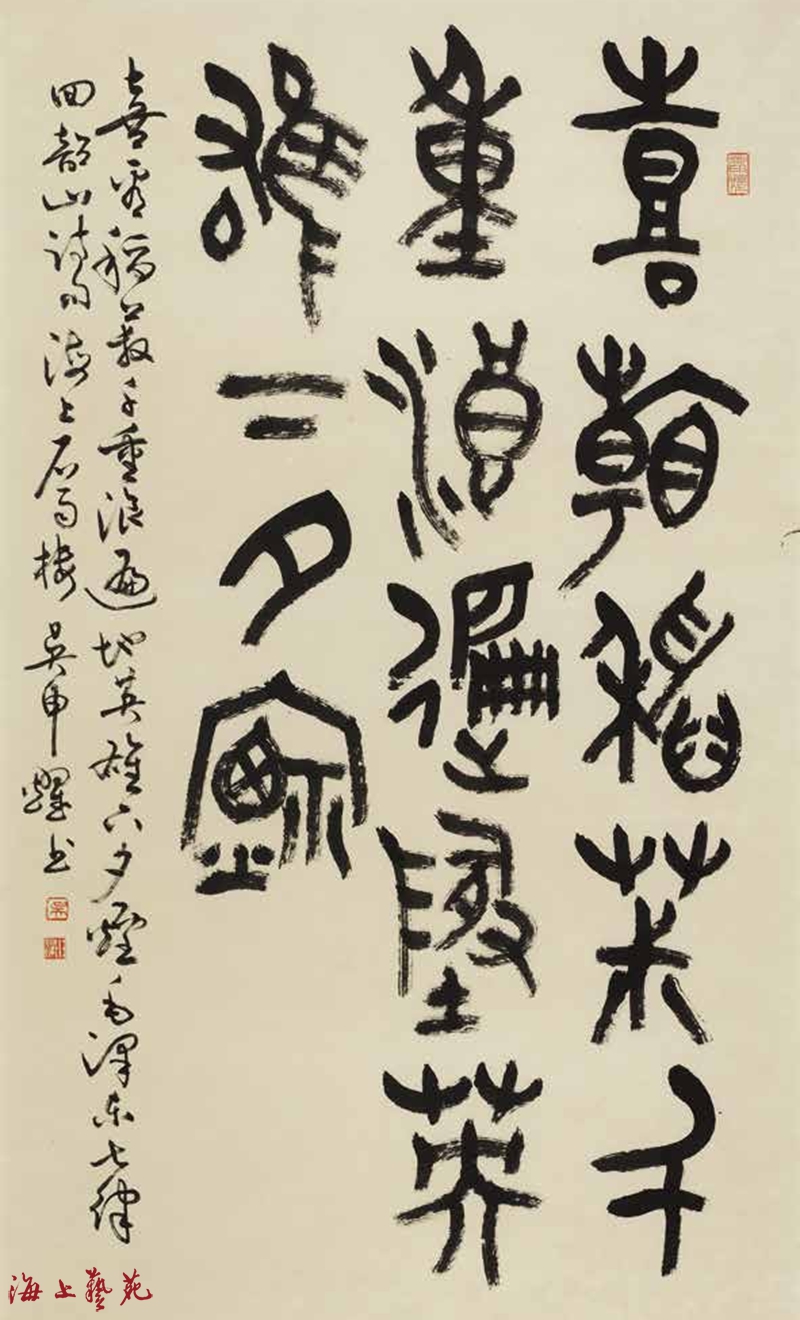 喜看稻菽千
重浪遍地英
雄下夕煙
喜看稻菽千重浪遍地英雄下夕煙毛澤東七律
回韶山詩句海上石樓吳申耀书
海上藝苑